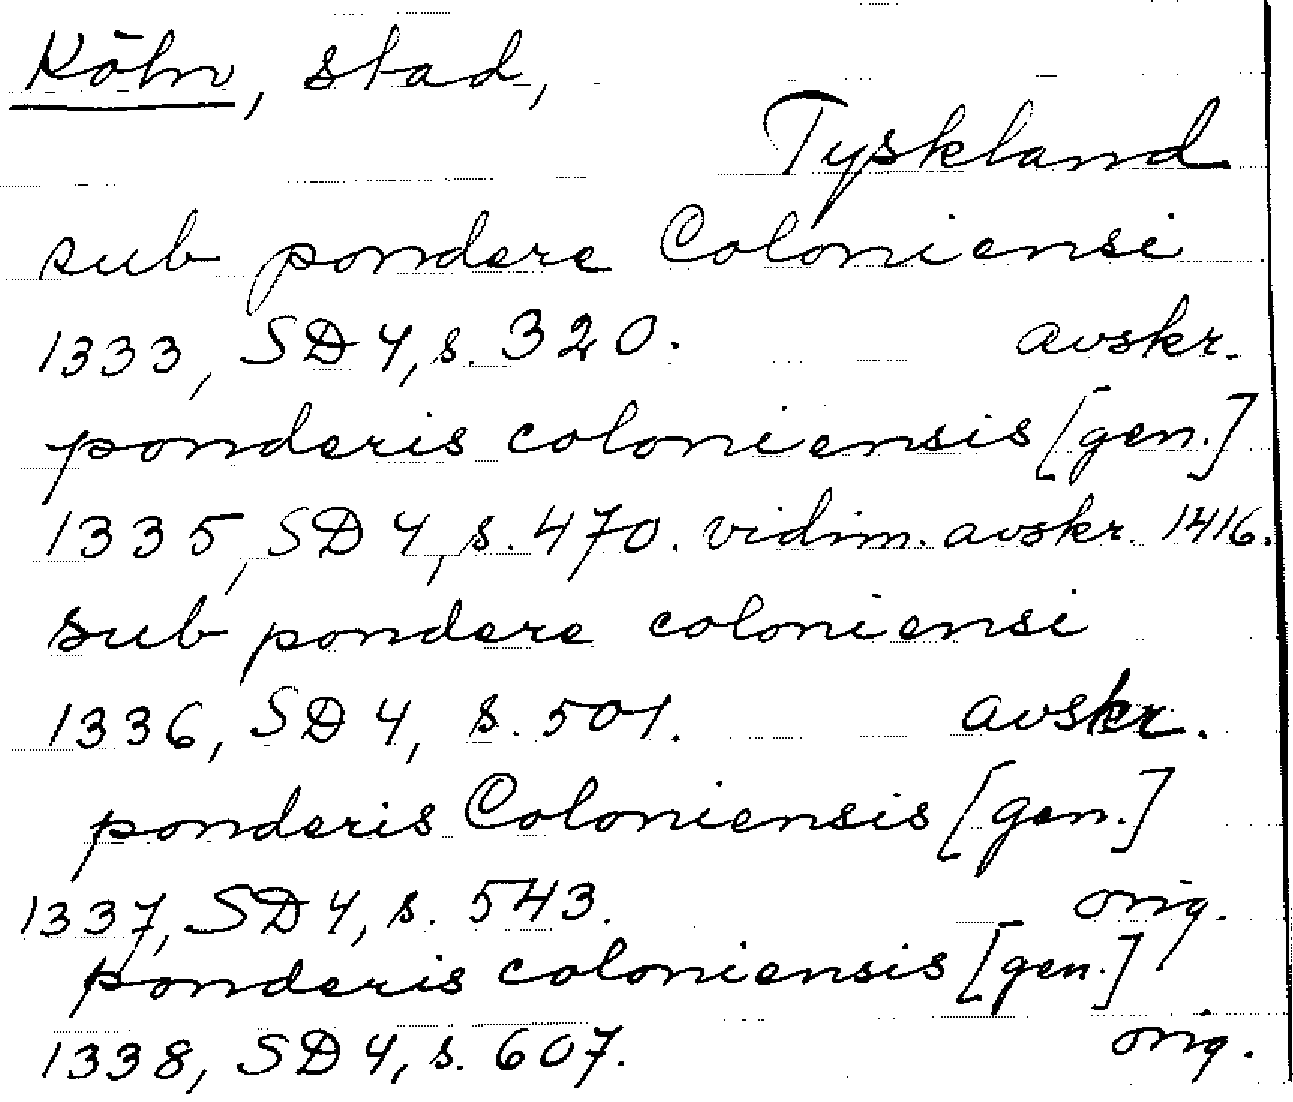 Köln, stad,
Tyskland
sub pondere Coloniensi
1333, SD 4, s. 320. avskr.
ponderis coloniensis [gen.]
1335, SD 4, s. 470. vidim. avskr. 1416.
sub pondere coloniensi
1336, SD 4, s. 501. avskr.
ponderis Coloniensis [gen.]
1337, SD 4, s. 543. orig.
ponderis coloniensis [gen.]
1338, SD 4, s. 607. orig.